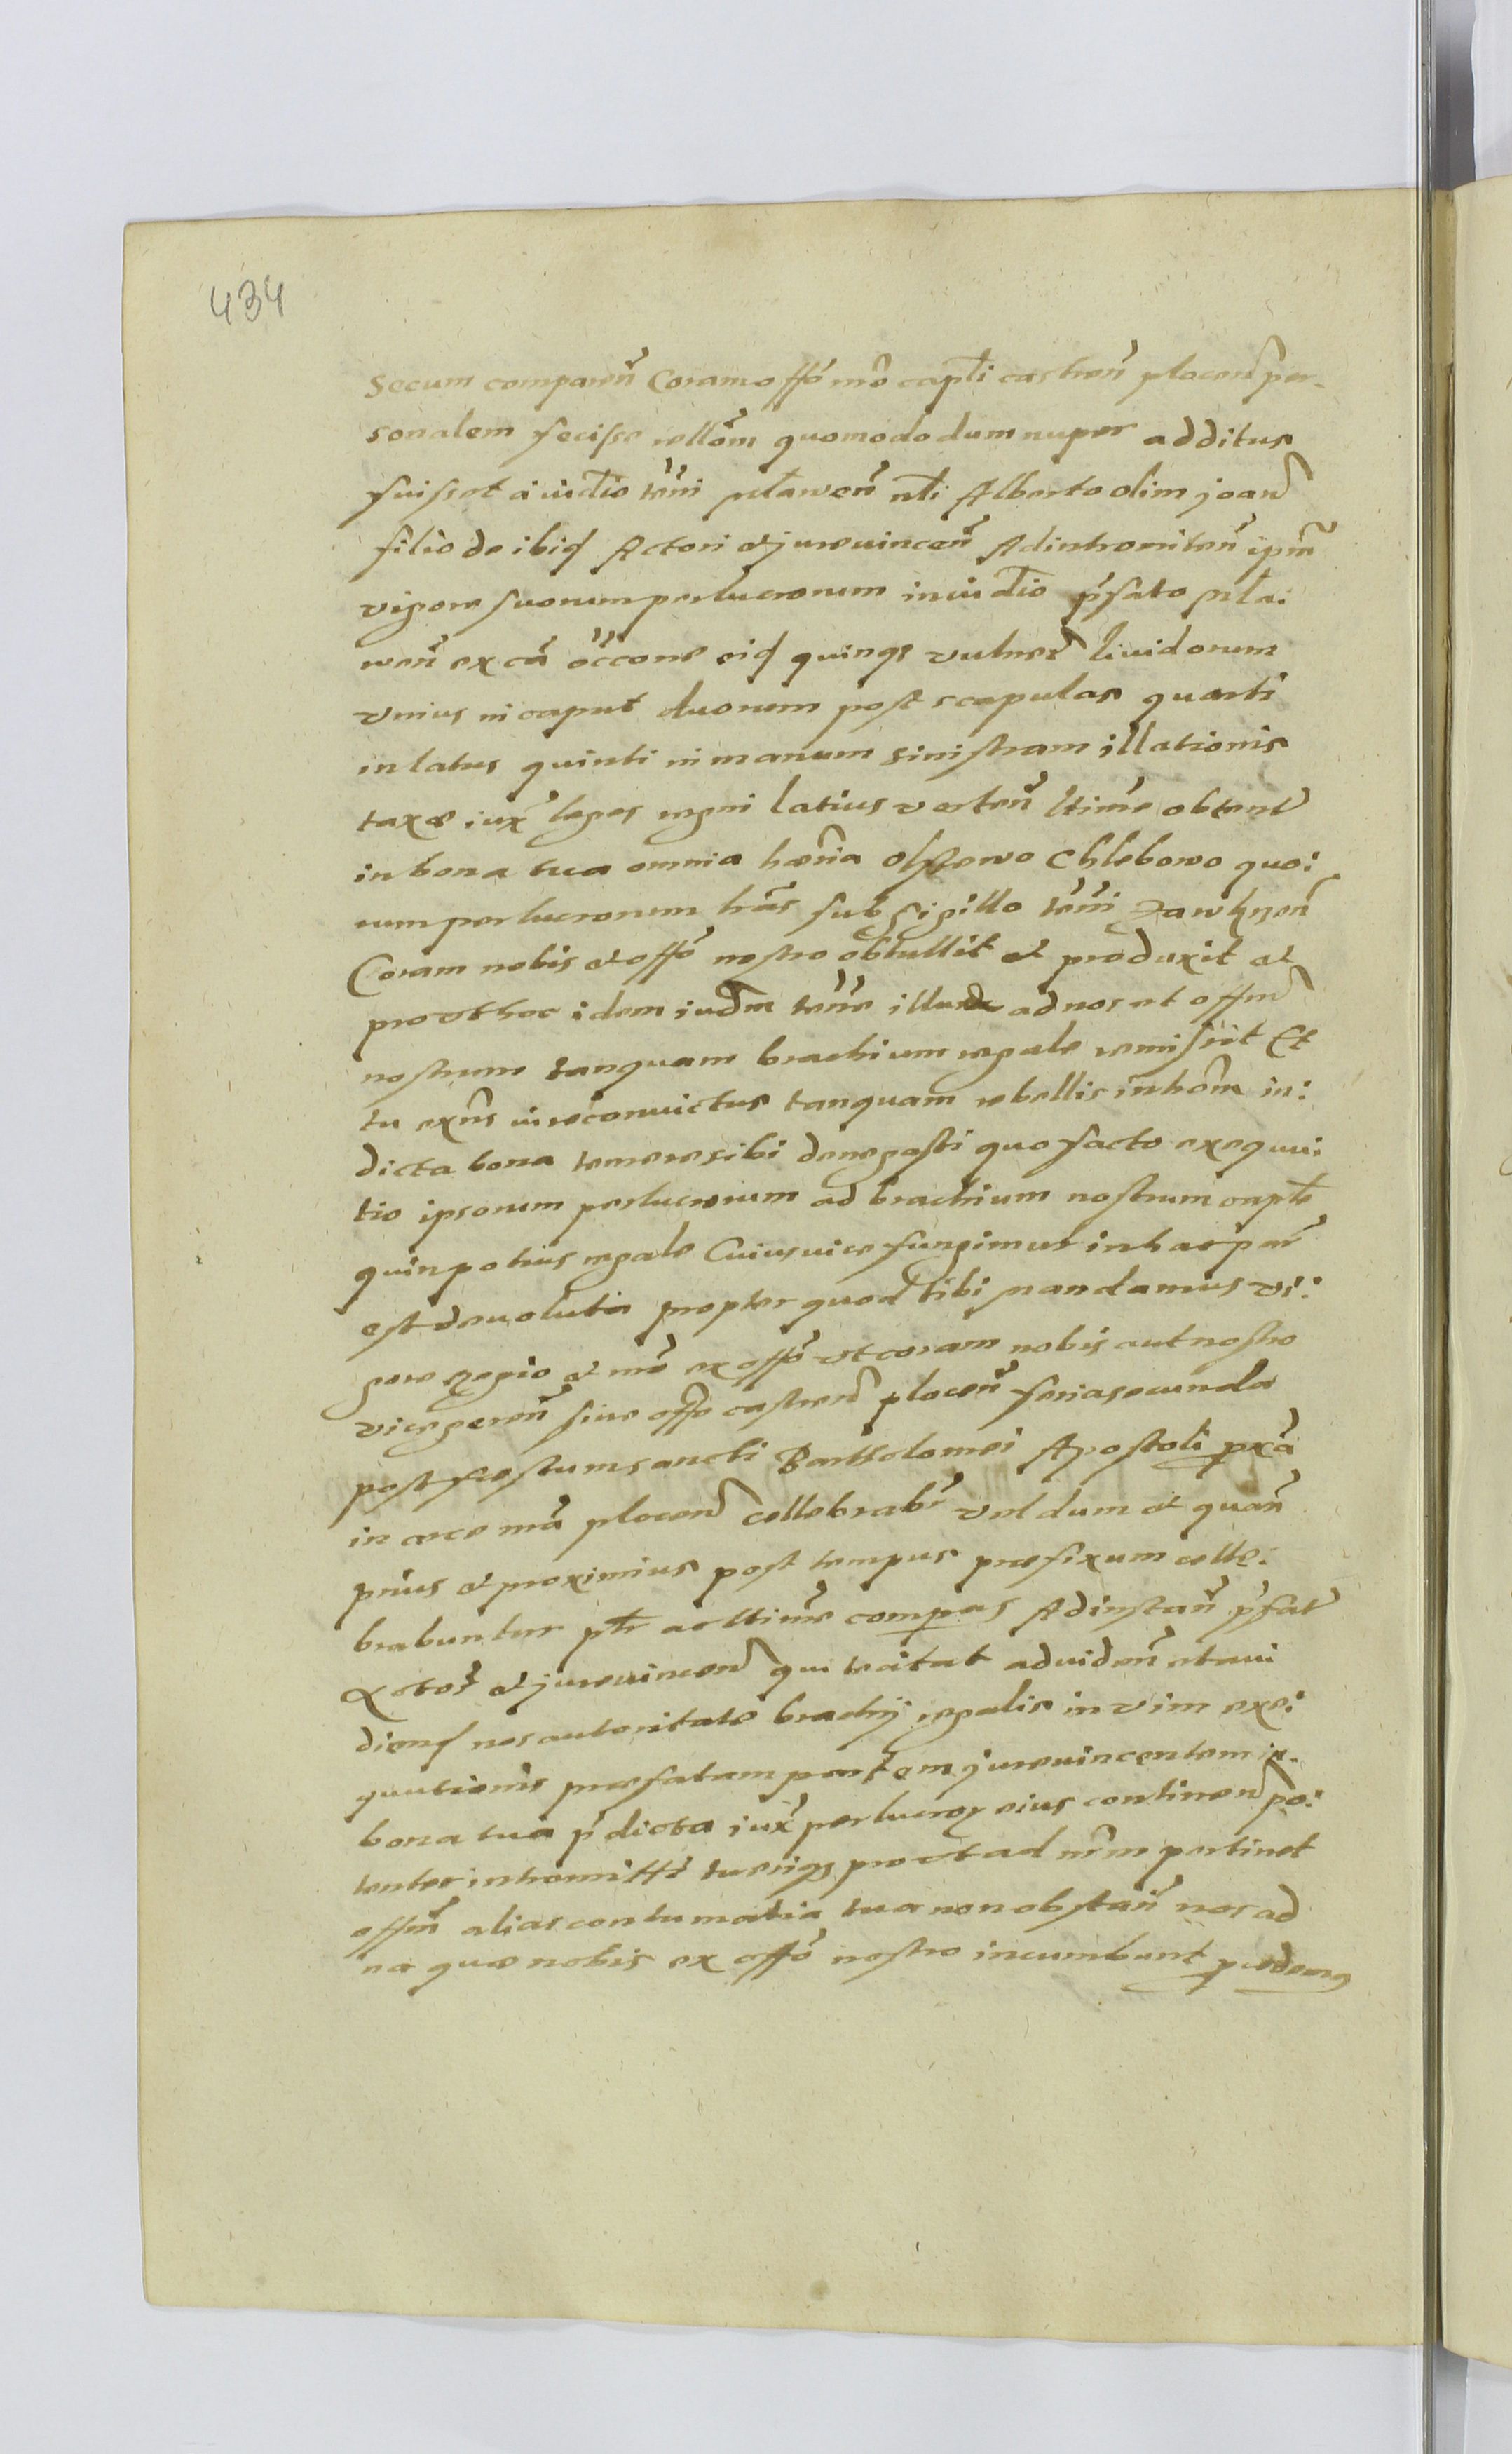 434
Secum comparen Coram offo nro captli castren plocen per-
sonalem fecisse rellom quomodo dum nuper additus
fuisset a iudcio terri mlawen nbli Alberto olim joan
filio de ibid Actori et jurevincen Ad intromitten ipm
vigore suorum perlucrorum in iudcio pfato mla:
wen ex ca occone eid quinqe vulner liuidorum
vnius in caput duorum post scapulas quarti
in latus quinti in manum sinistram illationis
taxae iux leges regni latius verten ltime obtent
in bona tua omnia haeria Chlebowo quo:
rum perlucrorum lras sub sigillo terri
Coram nobis et offo nostro obtullit et produxit et
prout hoc idem iudm terre illum ad nos et offm
nostrum tanquam brachium regale remisiit Et
tu exns iure convictus tanquam rebellis intrhom in:
dicta bona temere sibi denegasti quo facto exequu:
tio ipsorum perlucrorum ad brachium nostrum captle
quin potius regale Cuius vice fungimur in hac par
est devoluta propter quod tibi mandamus vi:
gore Regio et nro ex offo vt coram nobis aut nostro
vicegeren siue offo castren plocen feria secunda
post festum sancti Bartholomei Apostoli pxa
in arce nra plocen cellebrabr vel dum et quan
prius et proximius post tempus praefixum celle:
brabuntur ptr ac ltime compeas Ad instan pfat
Actor et jurevincen qui te citat ad viden et aui
diend nos autoritate brachij regalis in vim exe:
quutionis praefatam partem jurevincentem in
bona tua pdicta iux perlucror eius continen po:
tenter intromitti tueriqe prout ad nrm pertinet
offm alias contumatia tua non obstan nos ad
ea quae nobis ex offo nostro incumbunt